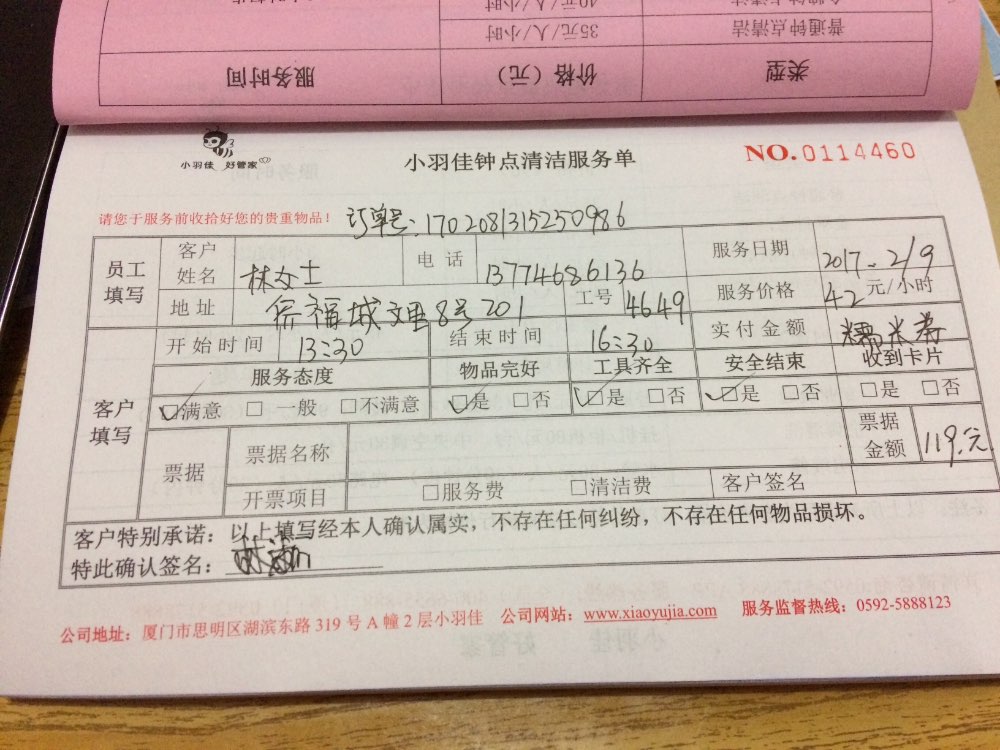 普通钟点清洁 35元/人/小时
类型 价格（元） 服务时间
小羽佳 好管家
小羽佳钟点清洁服务单
NO.0114460
请您于服务前收拾好您的贵重物品！ 订单号：1702081315250986
员工填写 客户姓名 林女士 电话 13774686136 服务日期 2017.2/9
地址 福城 8号201 工号 4649 服务价格 42元/小时
客户填写 开始时间 13:30 结束时间 16:30 实付金额 糯米券
服务态度 物品完好 工具齐全 安全结束 收到卡片
☑满意 □一般 □不满意 ☑是 □否 ☑是 □否 ☑是 □否 □是 □否
票据 票据名称 票据金额 119.元
开票项目 □服务费 □清洁费 客户签名
客户特别承诺：以上填写经本人确认属实，不存在任何纠纷，不存在任何物品损坏。
特此确认签名：
公司地址：厦门市思明区湖滨东路319号A幢2层小羽佳 公司网站：www.xiaoyujia.com 服务监督热线：0592-5888123